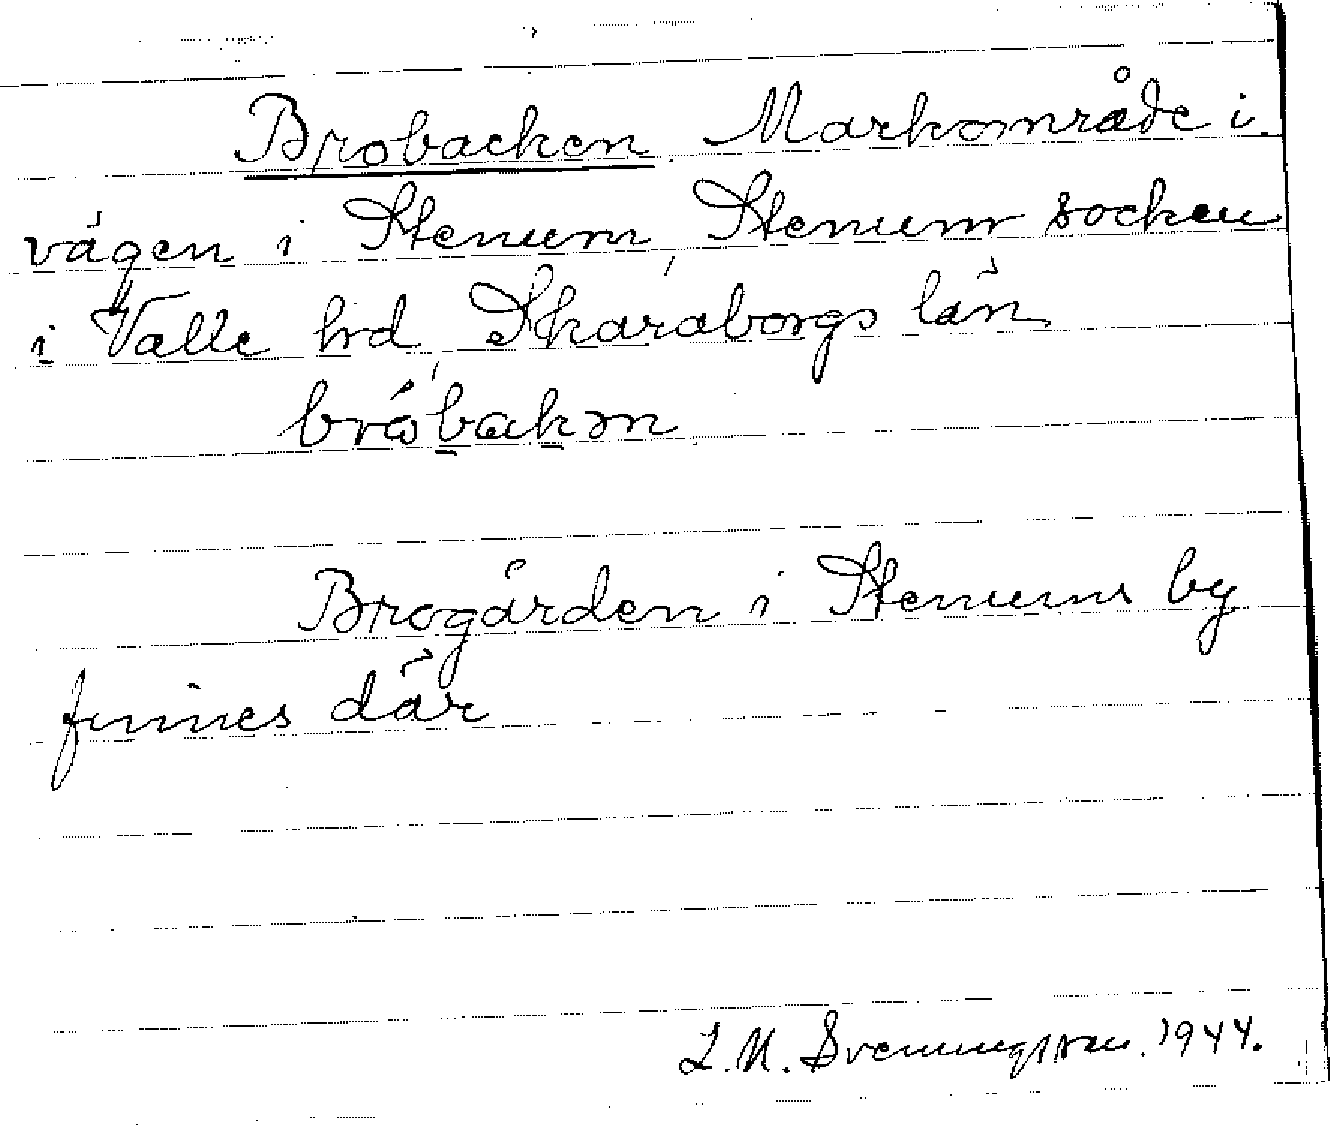 Brobacken Markområde i
vägen i Stenum, Stenum socken
i Valle hrd, Skaraborgs län
bråbakən
Brogården i Stenums by
finnes där
L. M. Svenungsson. 1944.